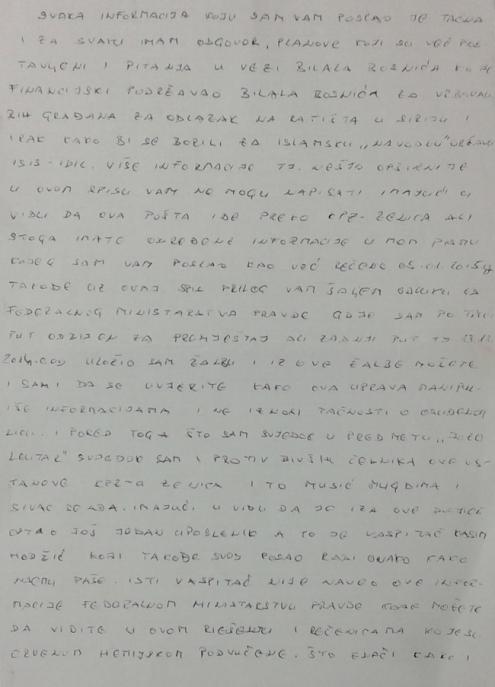 SVAKA INFORMACIJA KOJU SAM VAM POSLAO JE TAČNA
I ZA SVAKI IMAM ODGOVOR, PLANOVE KOJI SU VEĆ POS
TAVLJENI I PITANJA U VEZI BILALA BOSNIĆA KO JE
FINANCIJSKI PODRŽAVAO BILALA BOSNIĆA ZA VRBOVALI
BIH GRAĐANA ZA ODLAZAK NA RATIŠTA U SIRIJU I
IRAK KAKO BI SE BORILI ZA ISLAMSKU „NAVODU" DRŽAVU
ISIS-IDIL. VIŠE INFORMACIJE TJ. NEŠTO OPŠIRNIJE
U OVOM SPISU VAM NE MOGU NAPISATI IMAJUĆI U
VIDU DA OVA POŠTA IDE PREKO KPZ-ZENICA ALI
STOGA IMATE ODREĐENE INFORMACIJE U MOM PISMU
KOJEG SAM VAM POSLAO KAO VEĆ REČENO 05.01.2015
TAKOĐE UZ OVAJ SPIS PRILOG VAM ŠALJEM ODLUKU
FEDERALNOG MINISTARSTVA PRAVDE GDJE SAM PO
PUT ODBIJEN ZA PREMJEŠTAJ ALI ZADNJI PUT
2014.GOD ULOŽIO SAM ŽALBU I IZ OVE ŽALBE MOŽETE
I SAMI DA SE UVJERITE KAKO OVA UPRAVA MANIPU-
IŠE INFORMACIJAMA I NE IZNOSI TAČNOSTI O OSUĐENOM
LICU. I PORED TOGA ŠTO SAM SVJEDOK U PREDMETU
LEUTAR" SVJEDOK SAM I PROTIV BIVŠIH ČELNIKA OVE US-
TANOVE KPZ-A ZENICA I TO MUSIĆ MUGDIMA I
IMAJUĆI U VIDU DA JE IZA OVE
OSTAO JOŠ JEDAN UPOSLENIK A TO JE VASPITAČ KASIM
HODŽIĆ KOJI TAKOĐE SVOJ POSAO RADI ONAKO KAKO
NJEMU PAŠE. ISTI VASPITAČ NIJE NAVEO OVE INFOR-
MACIJE FEDERALNOM MINISTARSTVU PRAVDE KOJE MOŽETE
DA VIDITE U OVOM RJEŠENJU I REČENICAMA KOJE SU
CRVENOM HEMIJSKOM PODVUČENE. ŠTO ZNAČI KAKO I